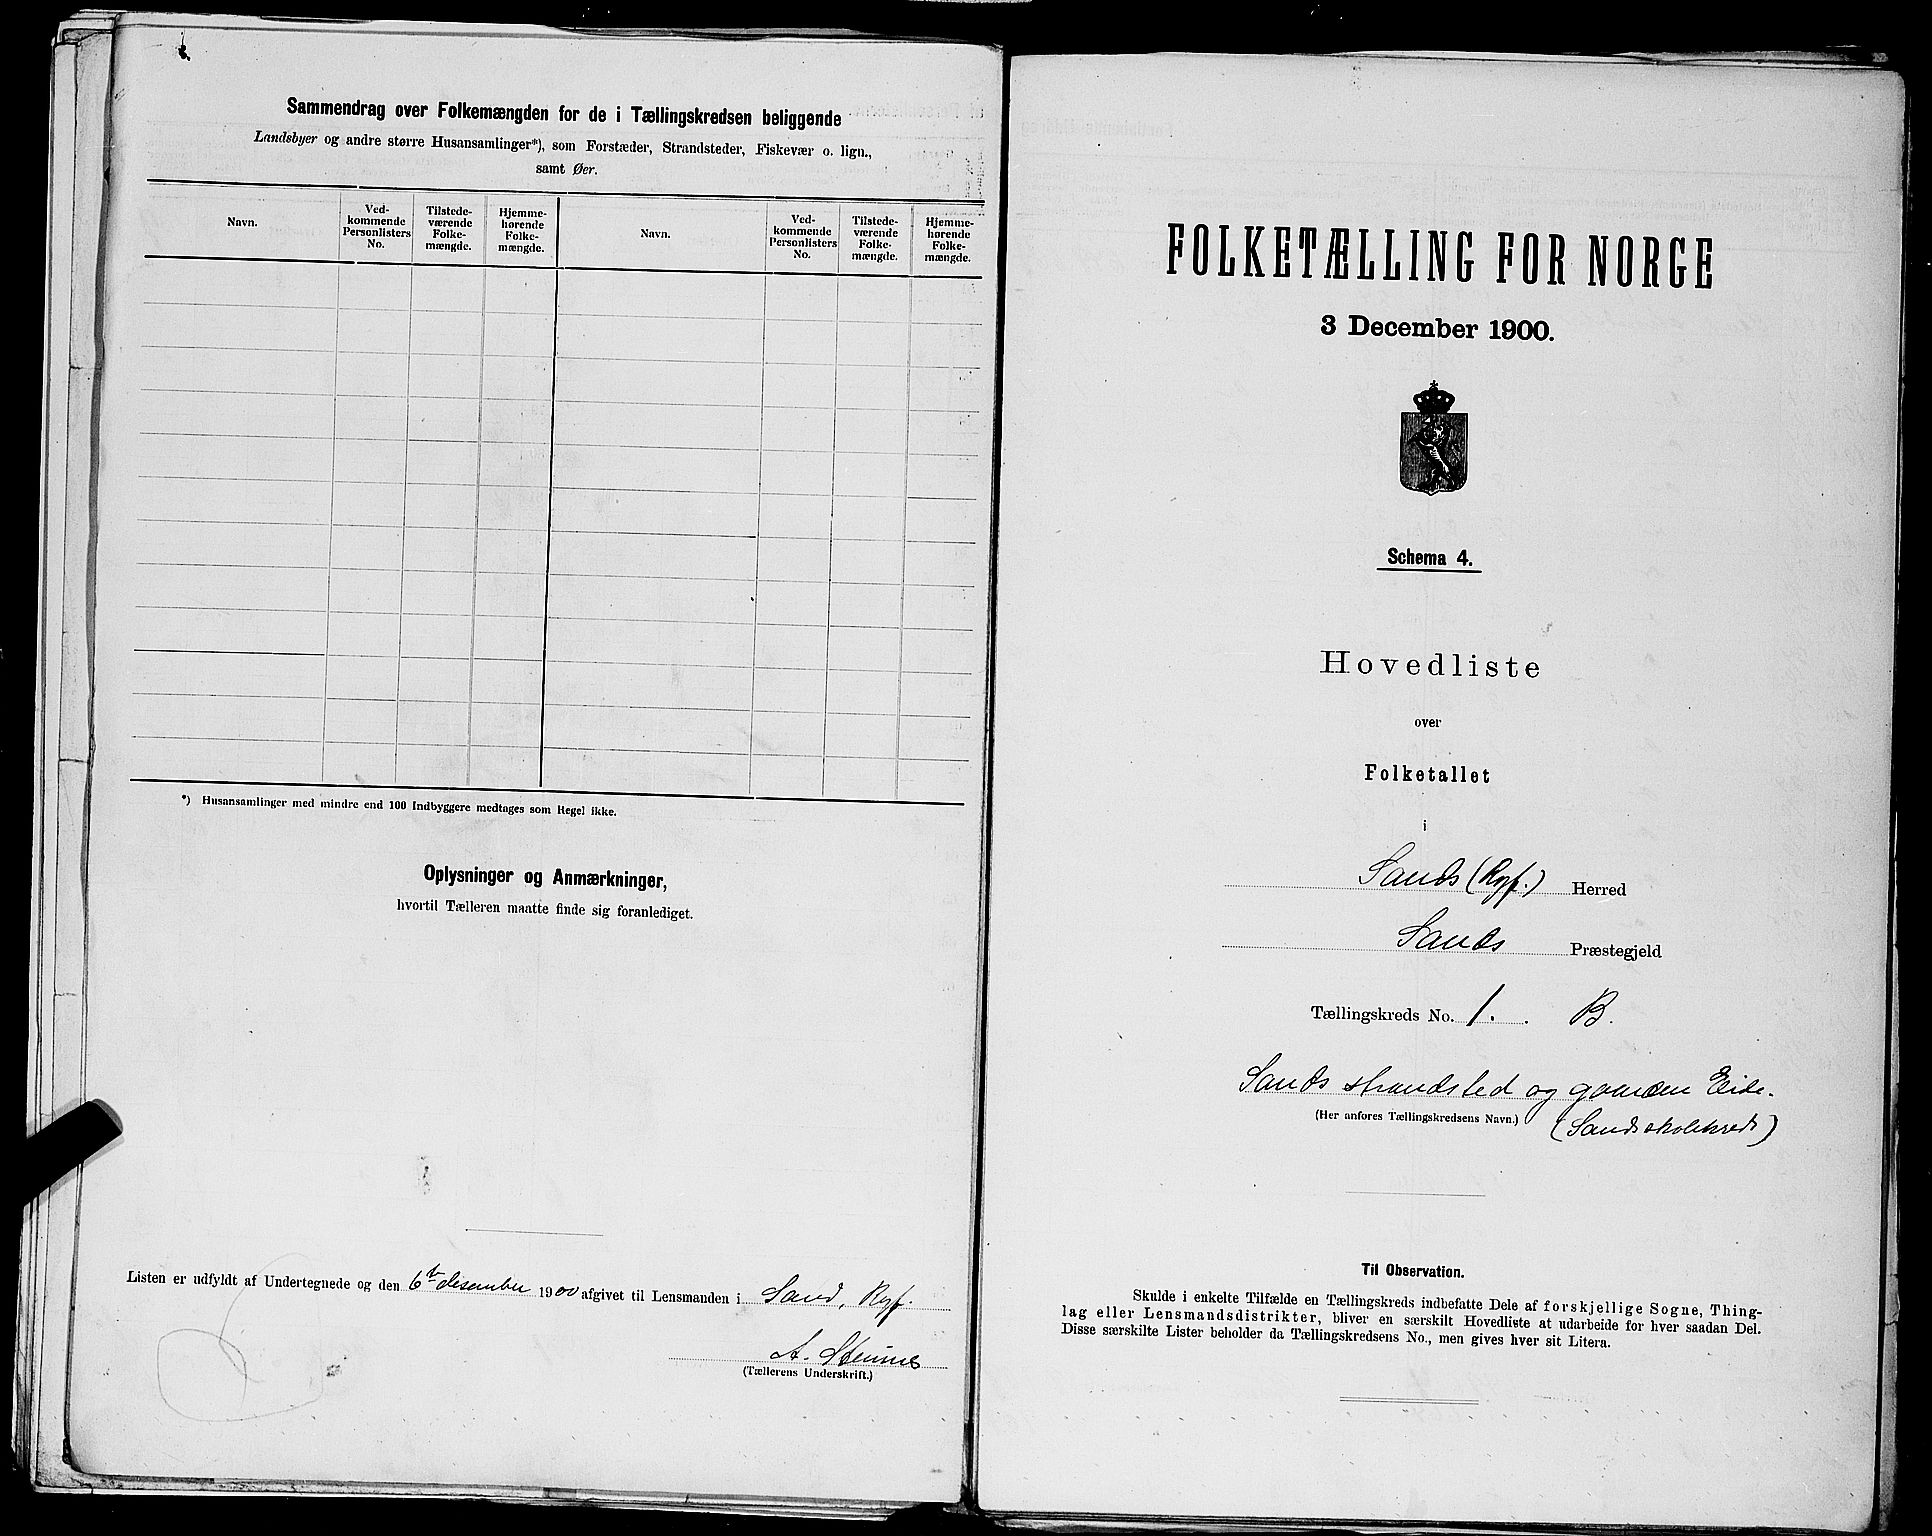 Sammendrag over Folkemængden for de i Tællingskredsen beliggende
Landsbyer og andre større Husansamlinger*), som Forstæder, Strandsteder, Fiskevær o. lign.,
samt Øer.
Navn.
Ved-
kommende
Personlisters
No.
Tilstede-
værende
Folke-
mængde.
Hjemme-
hørende
Folke-
mængde.
Navn.
Ved-
kommende
Personlisters
No.
Tilstede-
værende
Folke-
mængde.
Hjemme-
hørende
Folke-
mængde.
*) Husansamlinger med mindre end 100 Indbyggere medtages som Regel ikke.
Oplysninger og Anmærkninger,
hvortil Tælleren maatte finde sig foranlediget.
Listen er udfyldt af Undertegnede og den 6te desember 1900 afgivet til Lensmanden i Sand, Ryf.
A.
(Tællerens Underskrift.)
FOLKETÆLLING FOR NORGE
3 December 1900.
Schema 4.
Hovedliste
over
Folketallet
i
Sands (Ryf.) Herred
Sands Præstegjeld
Tællingskreds No. 1. B.
Sands strandsted og gaarden Eide.
(Her anføres Tællingskredsens Navn.)
(Sands skolekreds)
Til Observation.
Skulde i enkelte Tilfælde en Tællingskreds indbefatte Dele af forskjellige Sogne, Thing-
lag eller Lensmandsdistrikter, bliver en særskilt Hovedliste at udarbeide for hver saadan Del.
Disse særskilte Lister beholder da Tællingskredsens No., men gives hver sit Litera.